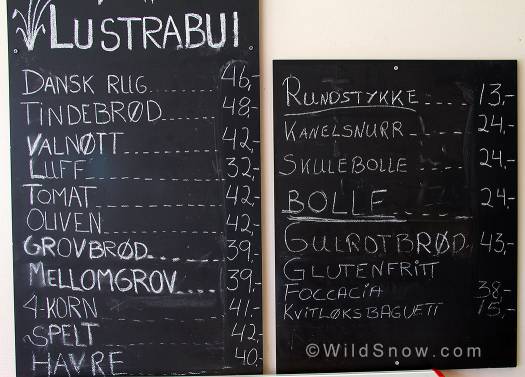 LUSTRABUI
DANSK RUG 46,-
TINDEBRØD 48,-
VALNØTT 42,-
LUFF 32,-
TOMAT 42,-
OLIVEN 42,-
GROVBRØD 39,-
MELLOMGROV 39,-
4-KORN 41,-
SPELT 42,-
HAVRE 40,-
RUNDSTYKKE 13,-
KANELSNURR 24,-
SKULEBOLLE 24,-
BOLLE 24,-
GULROTBRØD 43,-
GLUTENFRITT
FOCCACIA 38,-
KVITLØKSBAGUETT 15,-
©WildSnow.com